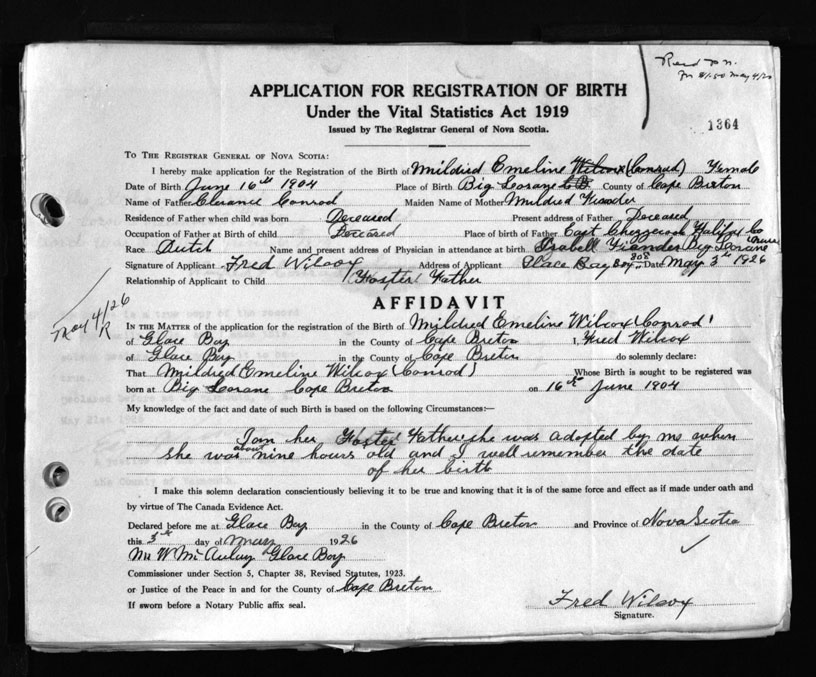 Recd
for $1.50 May 4/26
APPLICATION FOR REGISTRATION OF BIRTH
Under the Vital Statistics Act 1919
Issued by The Registrar General of Nova Scotia.
1364
TO THE REGISTRAR GENERAL OF NOVA SCOTIA:
I hereby make application for the Registration of the Birth of Mildred Emeline Wilcox (Conrad) Female
Date of Birth June 16th 1904 Place of Birth Big Lorane C.B. County of Cape Breton
Name of Father Clerance Conrod Maiden Name of Mother Mildred
Residence of Father when child was born Deceased Present address of Father Deceased
Occupation of Father at Birth of child Deceased Place of birth of Father East Chezzcook Halifax Co
Race Dutch Name and present address of Physician in attendance at birth Isabell Fiander Big Lorane Nurse
Signature of Applicant Fred Wilcox Address of Applicant Glace Bay Box 808 Date May 3rd 1926
Relationship of Applicant to Child "Foster" Father
May 4/26
R
AFFIDAVIT
IN THE MATTER of the application for the registration of the Birth of Mildred Emeline Wilcox (Conrad)
of Glace Bay in the County of Cape Breton I, Fred Wilcox
of Glace Bay in the County of Cape Breton do solemnly declare:
That Mildred Emeline Wilcox (Conrod) Whose Birth is sought to be registered was
born at Big Lorane Cape Breton on 16th June 1904
My knowledge of the fact and date of such Birth is based on the following Circumstances:—
I am her "Foster" Father, she was adopted by me when
she was about nine hours old and I well remember the date
of her birth
I make this solemn declaration conscientiously believing it to be true and knowing that it is of the same force and effect as if made under oath and
by virtue of The Canada Evidence Act.
Declared before me at Glace Bay in the County of Cape Breton and Province of Nova Scotia
this 3rd day of May 1926
W McAulay Glace Bay
Commissioner under Section 5, Chapter 38, Revised Statutes, 1923.
or Justice of the Peace in and for the County of Cape Breton
If sworn before a Notary Public affix seal.
Fred Wilcox
Signature.